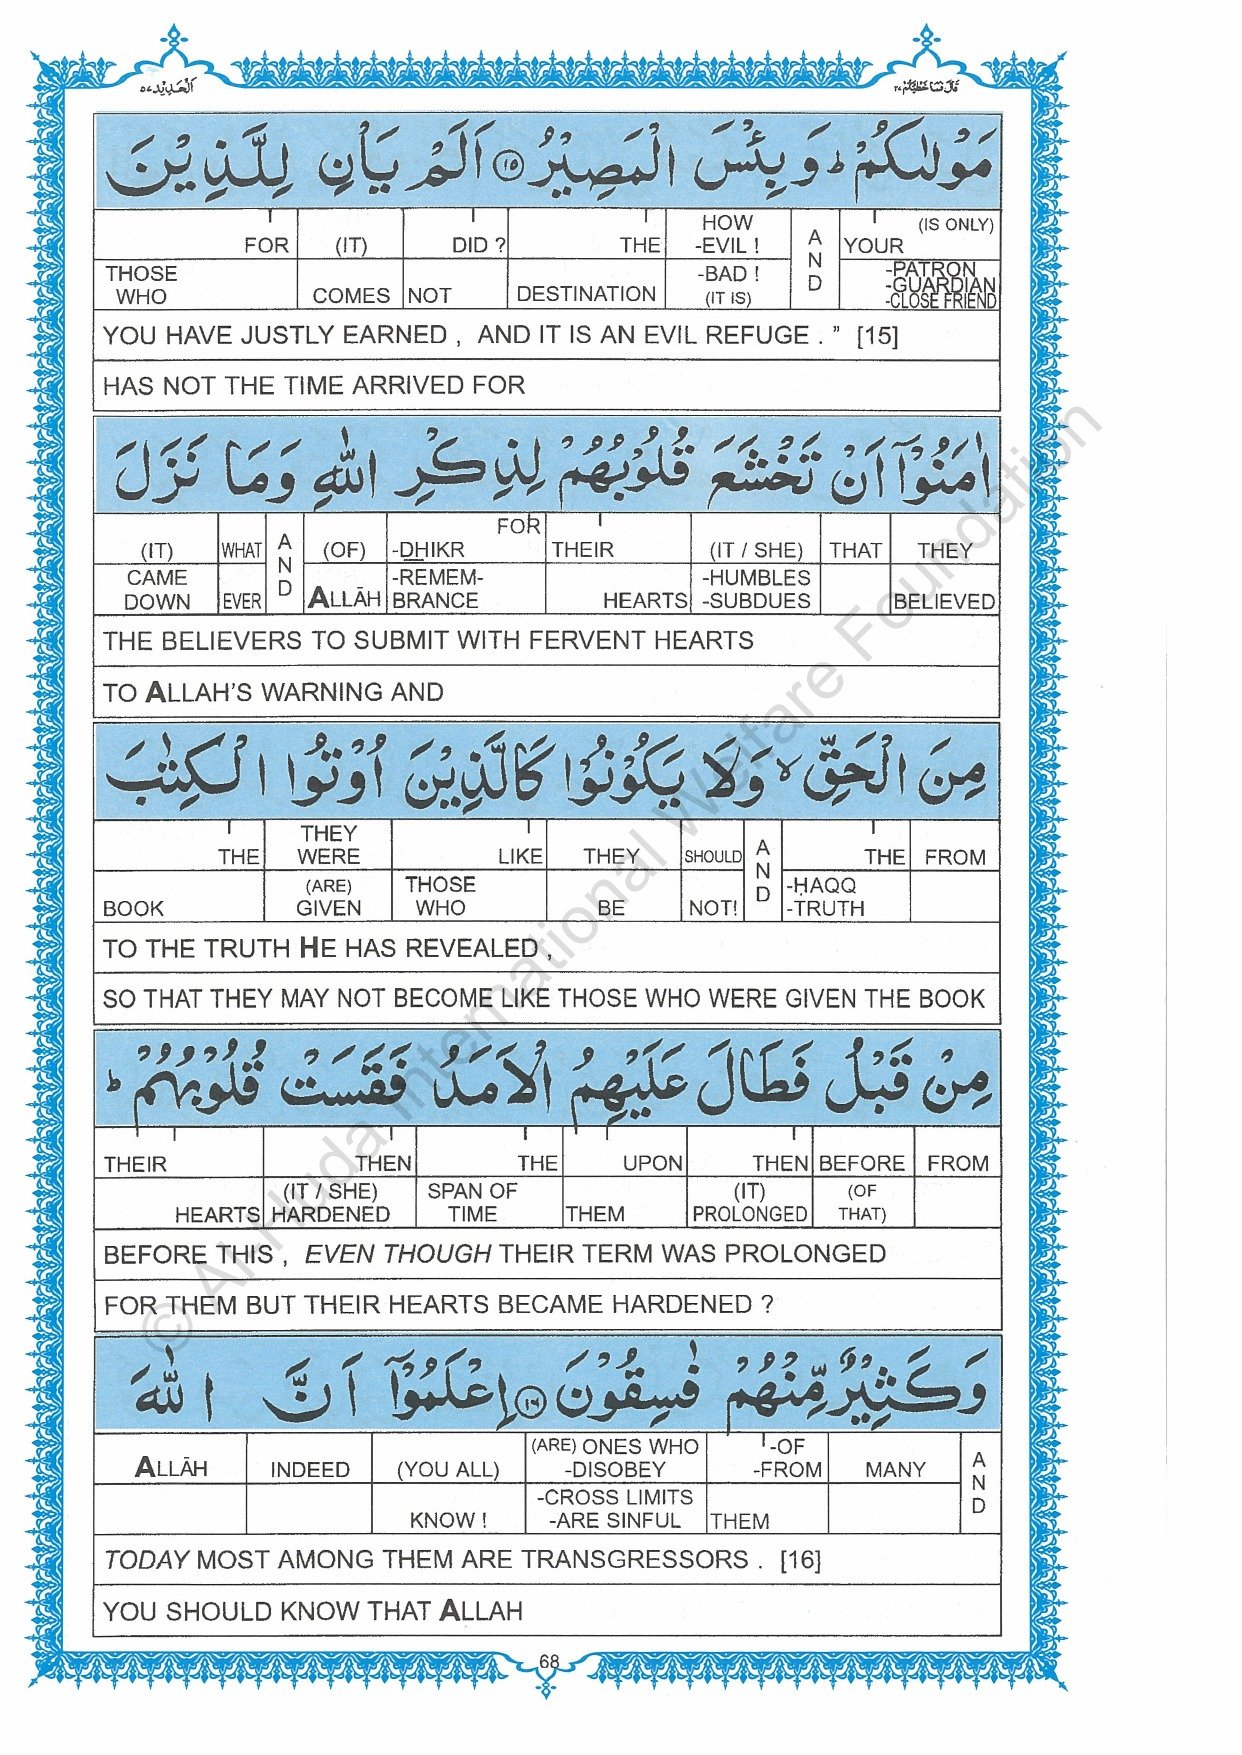 اَلْحَدِيْد ٥٧
قَالَ فَمَا خَطْبُكُمْ ٢٧
مَوْلٰىكُمْ ؕ وَ بِئْسَ الْمَصِيْرُ ١٥ اَلَمْ يَاْنِ لِلَّذِيْنَ
FOR (IT) DID ? THE HOW -EVIL ! AND YOUR (IS ONLY)
THOSE WHO COMES NOT DESTINATION -BAD ! (IT IS) -PATRON -GUARDIAN -CLOSE FRIEND
YOU HAVE JUSTLY EARNED , AND IT IS AN EVIL REFUGE . ” [15]
HAS NOT THE TIME ARRIVED FOR
اٰمَنُوْۤا اَنْ تَخْشَعَ قُلُوْبُهُمْ لِذِكْرِ اللّٰهِ وَ مَا نَزَلَ
(IT) WHAT AND (OF) FOR -DHIKR THEIR (IT / SHE) THAT THEY
CAME DOWN EVER ALLĀH -REMEM- BRANCE HEARTS -HUMBLES -SUBDUES BELIEVED
THE BELIEVERS TO SUBMIT WITH FERVENT HEARTS
TO ALLAH’S WARNING AND
مِنَ الْحَقِّ ۙ وَ لَا يَكُوْنُوْا كَالَّذِيْنَ اُوْتُوا الْكِتٰبَ
THE THEY WERE LIKE THEY SHOULD AND THE FROM
BOOK (ARE) GIVEN THOSE WHO BE NOT! -ḤAQQ -TRUTH
TO THE TRUTH HE HAS REVEALED ,
SO THAT THEY MAY NOT BECOME LIKE THOSE WHO WERE GIVEN THE BOOK
مِنْ قَبْلُ فَطَالَ عَلَيْهِمُ الْاَمَدُ فَقَسَتْ قُلُوْبُهُمْ ؕ
THEIR THEN THE UPON THEN BEFORE FROM
HEARTS (IT / SHE) HARDENED SPAN OF TIME THEM (IT) PROLONGED (OF THAT)
BEFORE THIS , EVEN THOUGH THEIR TERM WAS PROLONGED
FOR THEM BUT THEIR HEARTS BECAME HARDENED ?
وَ كَثِيْرٌ مِّنْهُمْ فٰسِقُوْنَ ١٦ اِعْلَمُوْۤا اَنَّ اللّٰهَ
ALLĀH INDEED (YOU ALL) (ARE) ONES WHO -DISOBEY -OF -FROM MANY AND
KNOW ! -CROSS LIMITS -ARE SINFUL THEM
TODAY MOST AMONG THEM ARE TRANSGRESSORS . [16]
YOU SHOULD KNOW THAT ALLAH
68
© Al-Huda International Welfare Foundation